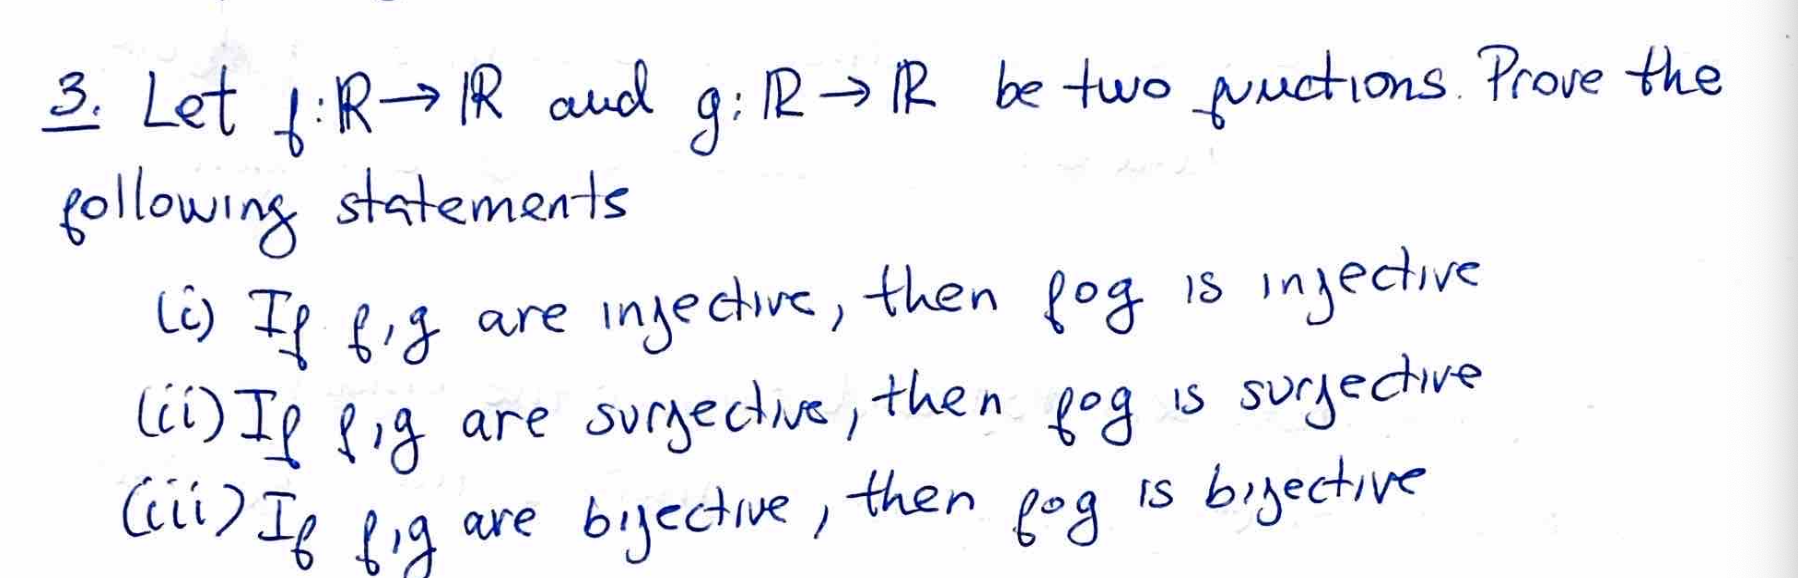 3. Let f: ℝ → ℝ and g: ℝ → ℝ be two functions. Prove the
following statements
(i) If f,g are injective, then fog is injective
(ii) If f,g are surjective, then fog is surjective
(iii) If f,g are bijective, then fog is bijective